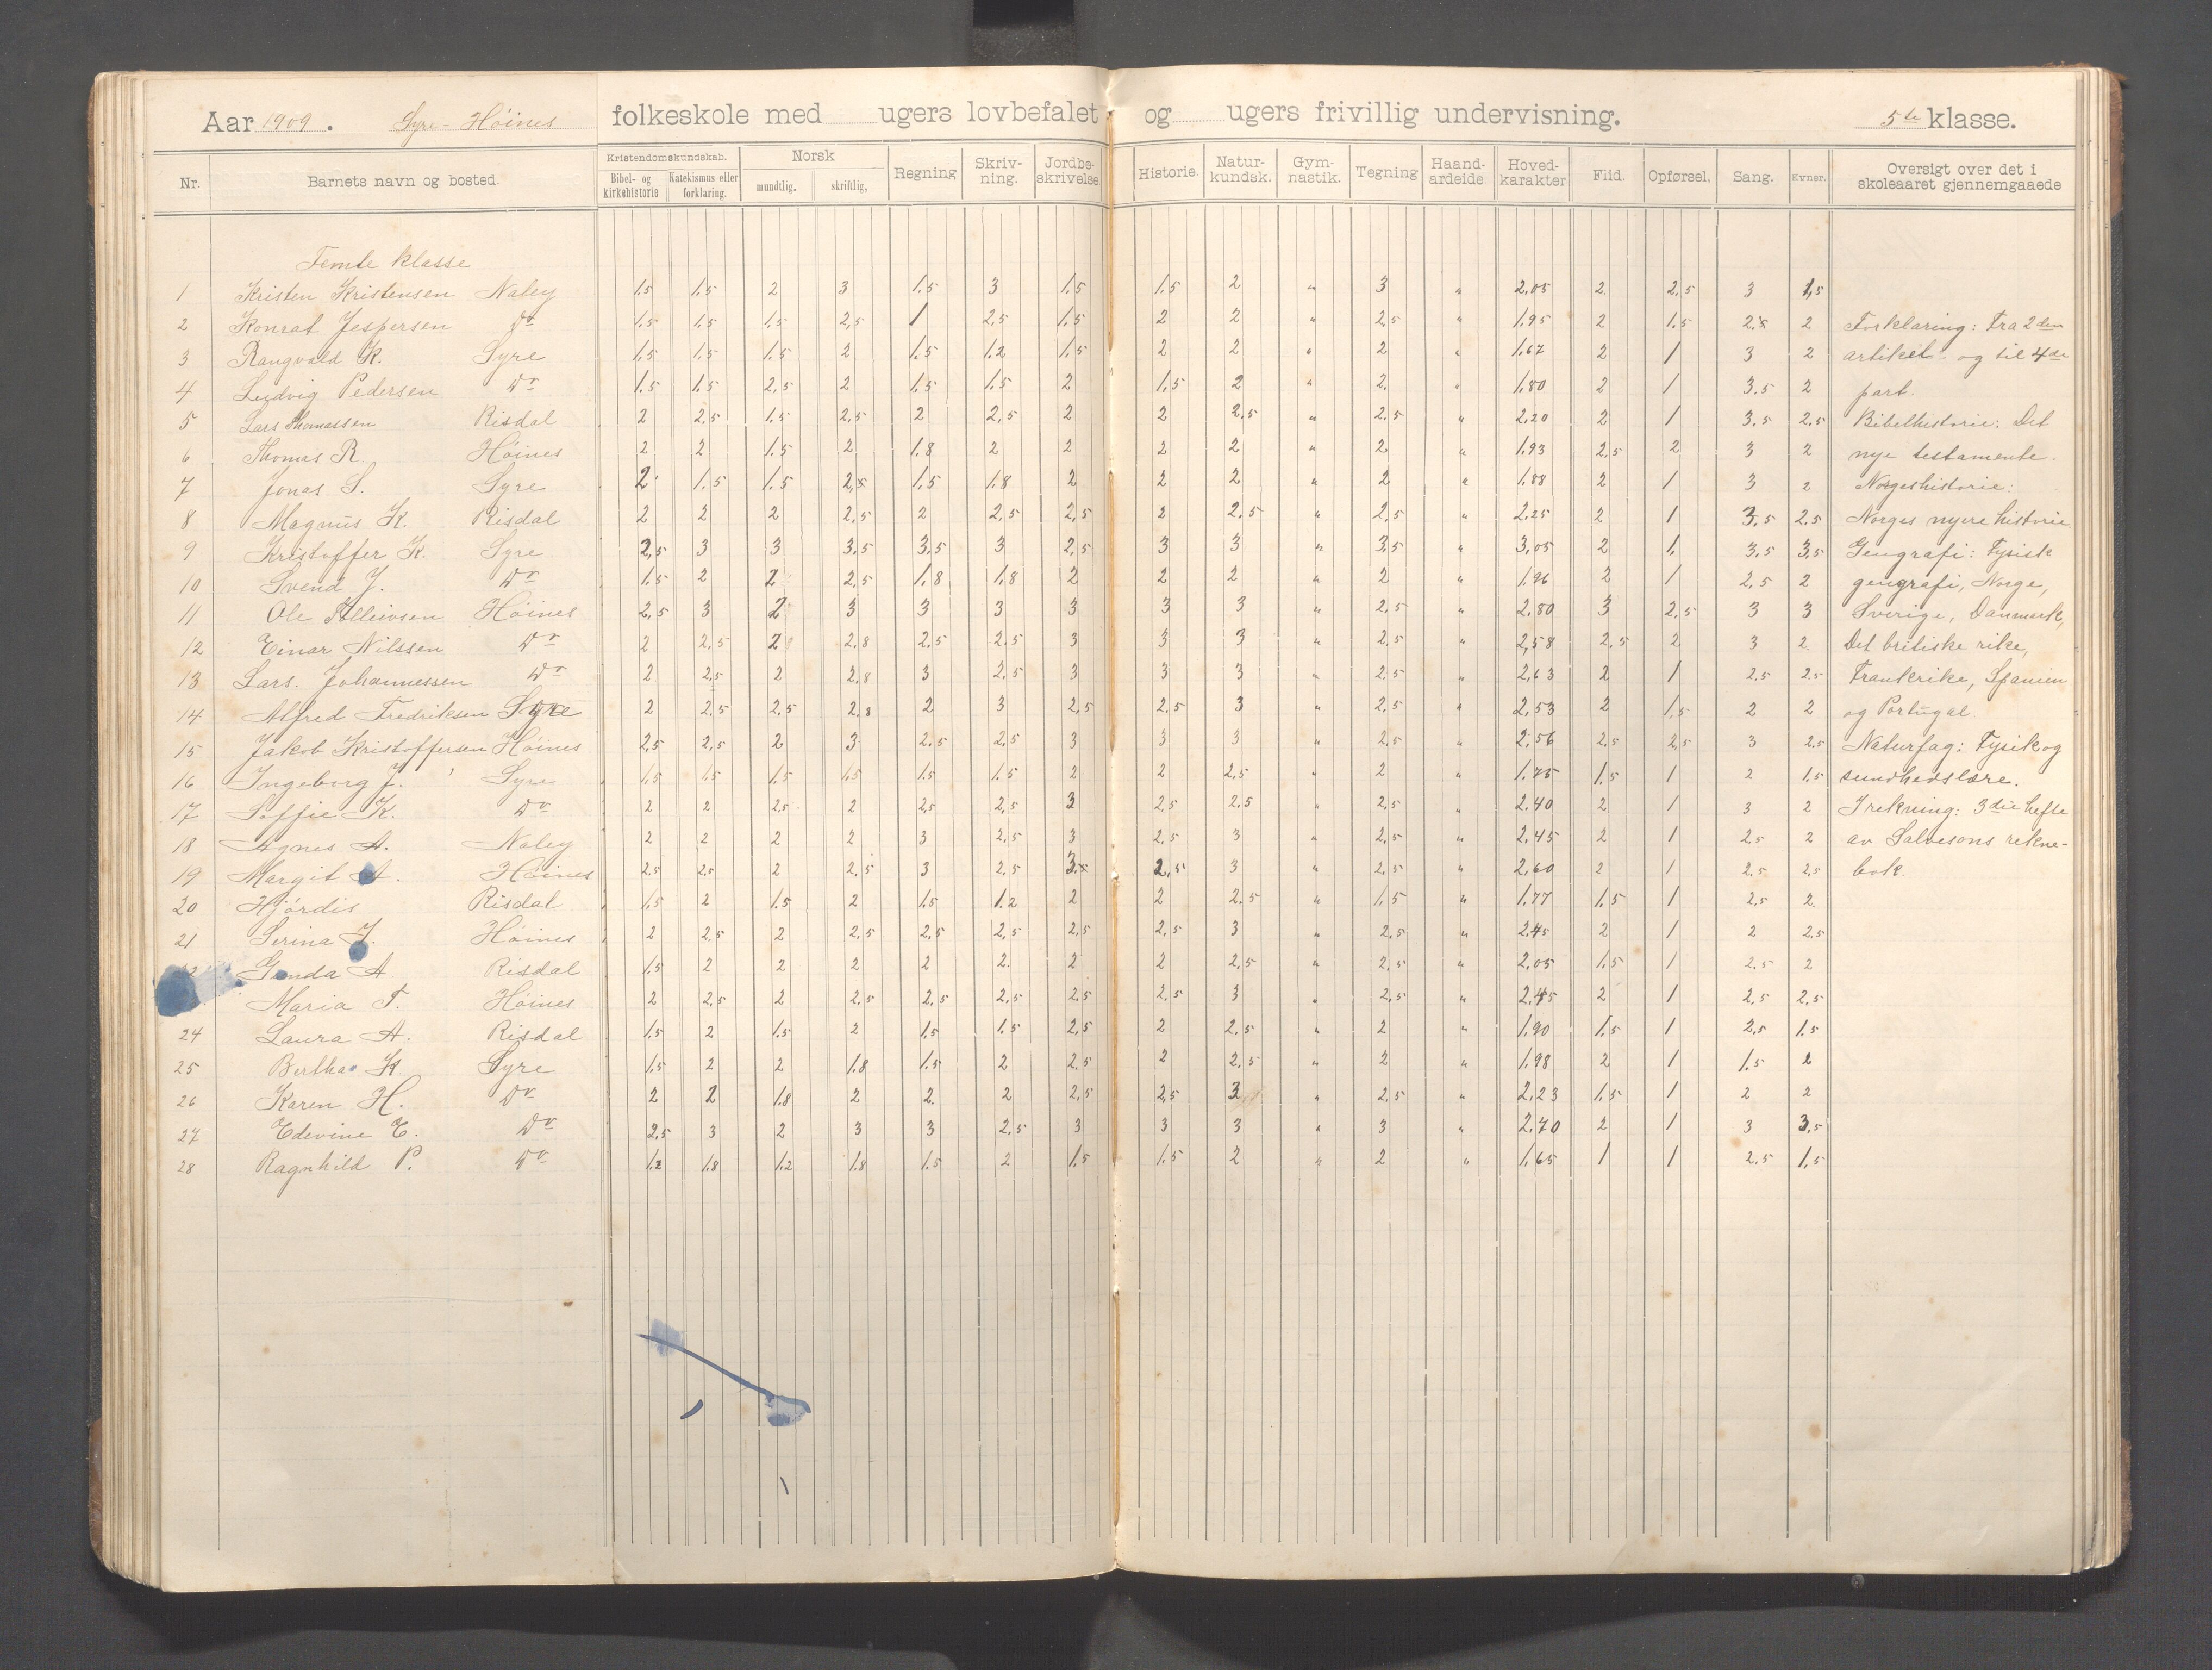 Aar 1909. Syre- Höines folkeskole med ugers lovbefalet og ugers frivillig undervisning. 5te klasse.
Nr. Barnets navn og bosted. Kristendomskundskab. Bibel- og kirkehistorie Katekismus eller forklaring. Norsk mundtlig. skriftlig. Regning Skriv-ning. Jordbe-skrivelse Historie. Natur-kundsk. Gym-nastik. Tegning Haand-arbeide Hoved-karakter Flid. Opførsel. Sang. Evner. Oversigt over det i skoleaaret gjennemgaaede
Femte klasse
1 Kristen Kristensen Naley 1.5 1.5 2 3 1.5 3 1.5 1.5 2 " 3 " 2,05 2 2,5 3 1,5
2 Konrat Jespersen Do 1.5 1.5 1.5 2,5 1 2,5 1,5 2 2 " 2,5 " 1,95 2 1.5 2,5 2 Forklaring: Fra 2den
3 Rangvald K. Syre 1.5 1.5 1.5 2 1.5 1.2 1.5 2 2 " 2 " 1,67 2 1 3 2 artikel og til 4de
4 Ludvig Pedersen Do 1.5 1.5 2,5 2 1.5 1.5 2 1,5 2 " 2 " 1,80 2 1 3,5 2 part.
5 Lars Thomassen Risdal 2 2,5 1.5 2,5 2 2,5 2 2 2,5 " 2,5 " 2,20 2 1 3,5 2,5 Bibelhistorie: Det
6 Thomas R. Höines 2 2 1.5 2 1.8 2 2 2 2 " 2 " 1,93 2,5 2 3 2 nye testamente.
7 Jonas S. Syre 2 1.5 1.5 2,5 1.5 1.8 2 2 2 " 2 " 1,88 2 1 3 2 Norgeshistorie:
8 Magnus K. Risdal 2 2 2 2,5 2 2,5 2,5 2 2,5 " 2,5 " 2,25 2 1 3,5 2,5 Norges nyere historie
9 Kristoffer K. Syre 2,5 3 3 3,5 3,5 3 2,5 3 3 " 3,5 " 3,05 2 1 3,5 3,5 Geografi: Fysisk
10 Svend J. Do 1.5 2 2 2,5 1,8 1,8 2 2 2 " 2 " 1,96 2 1 2,5 2 geografi, Norge,
11 Ole Höines 2,5 3 2 3 3 3 3 3 3 " 2,5 " 2,80 3 2,5 3 3 Sverige, Danmark,
12 Einar Nilssen Do 2 2,5 2 2,8 2,5 2,5 3 3 3 " 2,5 " 2,58 2,5 2 3 2 Det britiske rike,
13 Lars. Johannessen Do 2 2,5 2 2,8 3 2,5 3 3 3 " 2,5 " 2,63 2 1 2,5 2,5 Frankrike, Spanien
14 Alfred Fredriksen Syre 2 2,5 2,5 2,8 2 3 2,5 2,5 3 " 2,5 " 2,53 2 1,5 2 2 og Portugal.
15 Jakob Kristoffersen Höines 2,5 2,5 2 3 2,5 2,5 3 3 3 " 2,5 " 2,56 2,5 2,5 3 2,5 Naturfag: Fysik og
16 Ingeborg J. Syre 1.5 1.5 1.5 1.5 1.5 1.5 2 2 2,5 " 2 " 1,75 1.5 1 2 1,5 sundhedslære.
17 Soffie K. Do 2 2 2,5 2 2,5 2,5 3 2,5 2,5 " 2,5 " 2,40 2 1 3 2 I rekning: 3die hefte
18 Agnes A. Naley 2 2 2 2 3 2,5 3 2,5 3 " 2,5 " 2,45 2 1 2,5 2 av Salvesons rekne-
19 Margit A. Höines 2,5 2,5 2 2,5 3 2,5 3 2,5 3 " 2,5 " 2,60 2 1 2,5 2,5 bok.
20 Hjördis Risdal 1,5 2 1.5 2 1.5 1.2 2 2 2,5 " 1,5 " 1,77 1,5 1 2,5 2
21 Serina J. Höines 2 2,5 2 2,5 2,5 2,5 2,5 2,5 3 " 2,5 " 2,45 2 1 2 2,5
A. Risdal 1.5 2 2 2 2 2 2 2 2,5 " 2,5 " 2,05 1,5 1 2,5 2
Maria T. Höines 2 2,5 2 2,5 2,5 2,5 2,5 2,5 3 " 2,5 " 2,45 2 1 2,5 2,5
24 Laura A. Risdal 1.5 2 1.5 2 1.5 1.5 2,5 2 2,5 " 2 " 1,90 1.5 1 2,5 1.5
25 Bertha K. Syre 1.5 2 2 1.8 1.5 2 2,5 2 2,5 " 2 " 1,98 2 1 1.5 2
26 Karen H. Do 2 2 1.8 2 2 2 2,5 2,5 3 " 2,5 " 2,23 1,5 1 2 2
27 Edevine E. Do 2,5 3 2 3 3 2,5 3 3 3 " 3 " 2,70 2 1 3 3,5
28 Ragnhild P. Do 1.2 1.8 1.2 1.8 1.5 2 1,5 1.5 2 " 2 " 1,65 1 1 2,5 1,5